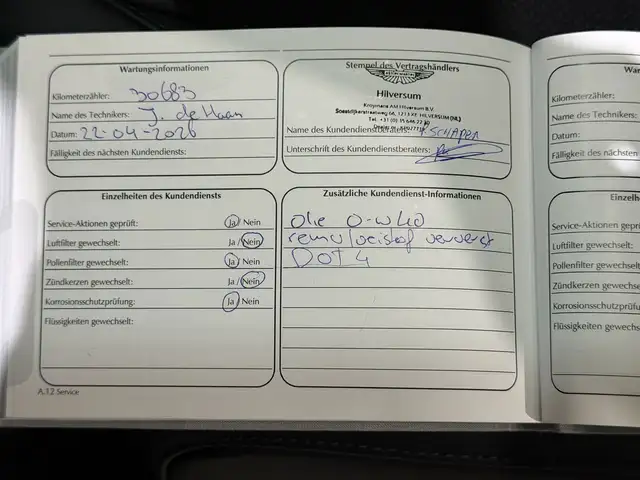 Wartungsinformationen
Kilometerzähler: 30683
Name des Technikers: J. de Haan
Datum: 22-04-2026
Fälligkeit des nächsten Kundendiensts:
Stempel des Vertragshändlers
Hilversum
Kroymans AM Hilversum B.V.
Soestdijkerstraatweg 66, 1213 XE HILVERSUM (NL)
Name des Kundendienstberaters: SCHAPER
Unterschrift des Kundendienstberaters:
Einzelheiten des Kundendiensts
Service-Aktionen geprüft: Ja / Nein
Luftfilter gewechselt: Ja / Nein
Pollenfilter gewechselt: Ja / Nein
Zündkerzen gewechselt: Ja / Nein
Korrosionsschutzprüfung: Ja / Nein
Flüssigkeiten gewechselt:
Zusätzliche Kundendienst-Informationen
olie 0-W40
DOT 4
A.12 Service
Kilometerzähler:
Name des Technikers:
Datum:
Fälligkeit des nächsten
Service-Aktionen geprüft:
Luftfilter gewechselt:
Pollenfilter gewechselt:
Zündkerzen gewechselt:
Korrosionsschutzprüfung
Flüssigkeiten gewechselt